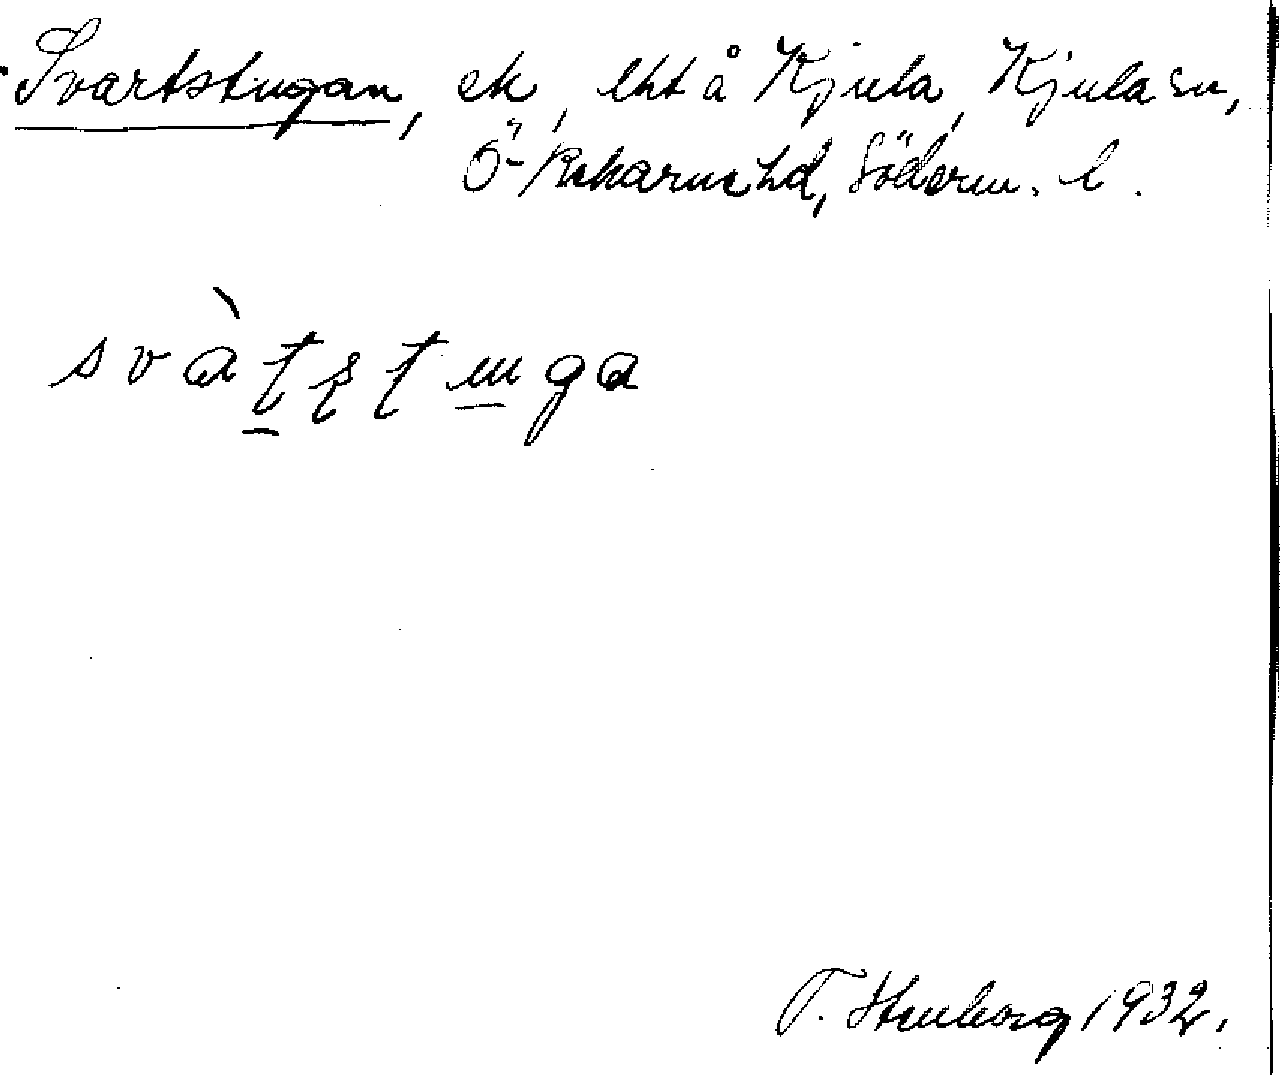 Svartstugan, ek, lht å Kjula, Kjula sn,
Ö-Rekarne hd, Söderm. l.
svàʈʂʈuga
T. Stenborg 1932.